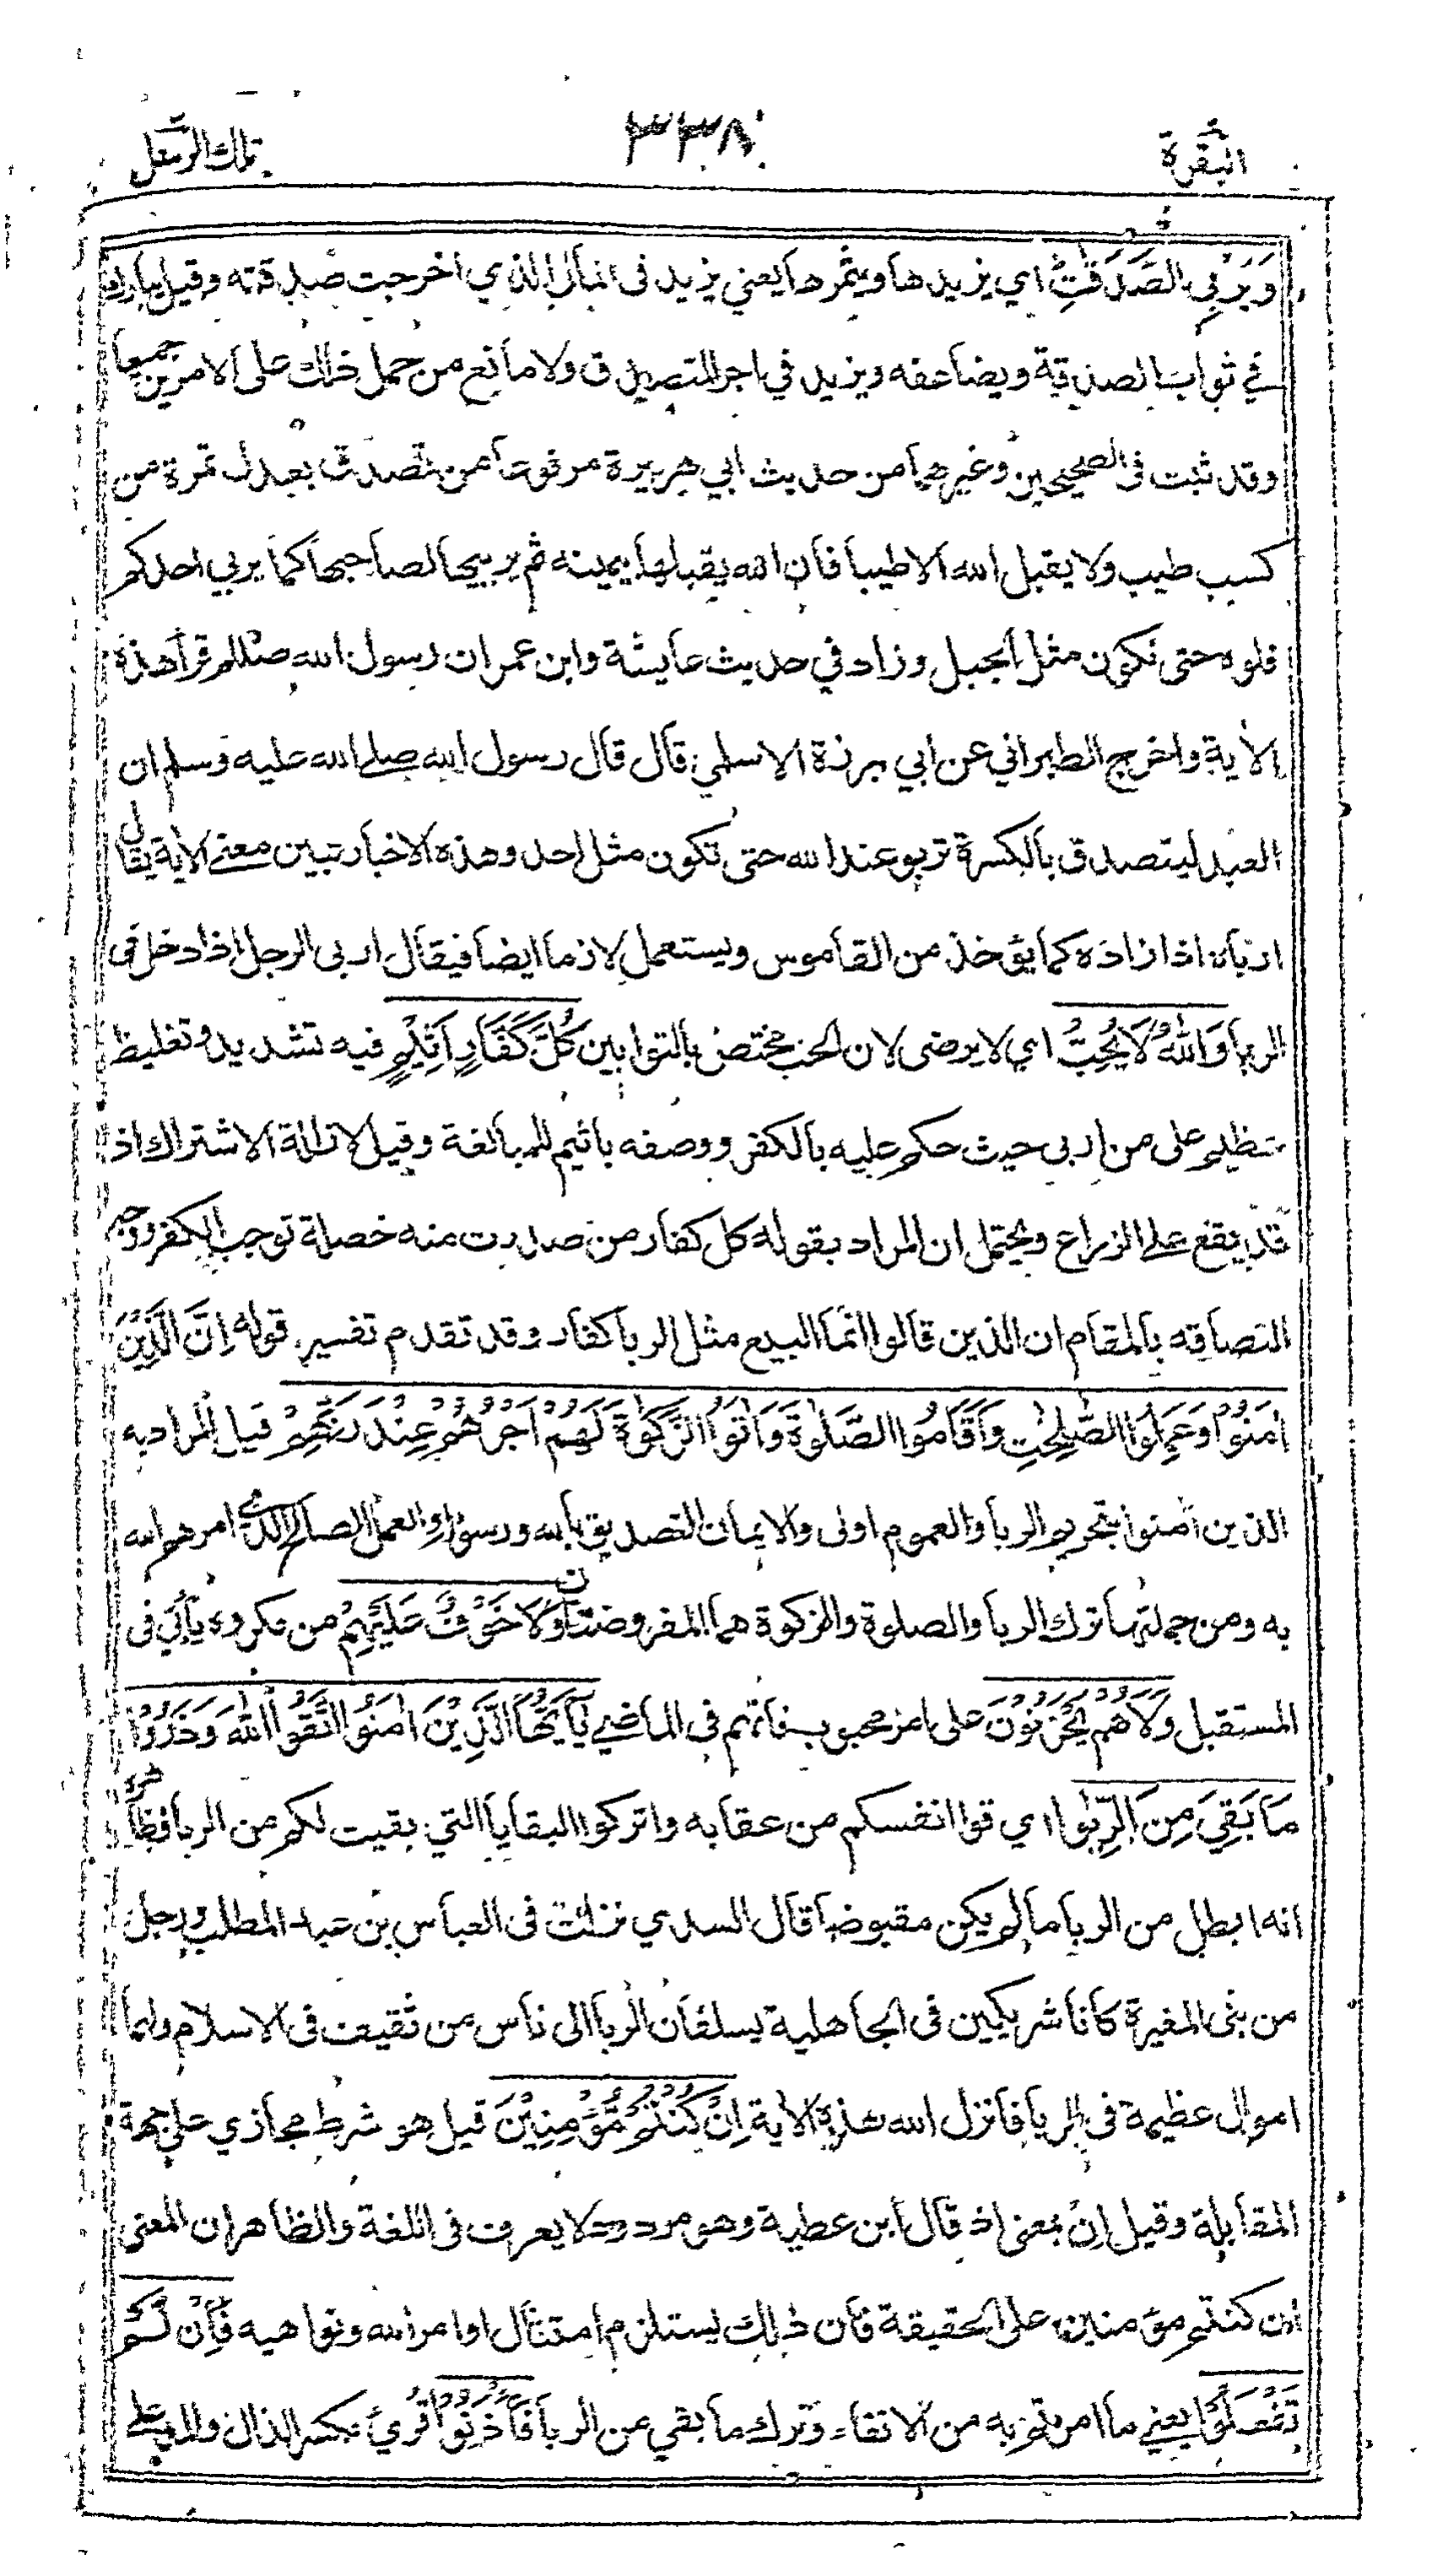 البقرة
٣٣٨
تلك الرسل
وَيُرْبِي الصَّدَقٰتِ اي يزيدها ويثمرها يعني يزيد فى المال الذي اخرجت صدقته وقيل يبارك
في ثواب الصدقة ويضاعفه ويزيد في اجر المتصدق ولا مانع من حمل ذلك على الامرين جميعا
وقد ثبت فى الصحيحين وغيرهما من حديث ابي هريرة مرفوعا من تصدق بعدل تمرة من
كسب طيب ولا يقبل الله الا طيبا فان الله يقبلها بيمينه ثم يربيها لصاحبها كما يربي احدكم
فلوه حتى تكون مثل الجبل وزاد في حديث عايشة وابن عمر ان رسول الله صللم قرأ هذه
الاية واخرج الطبراني عن ابي برزة الاسلمي قال قال رسول الله صلى الله عليه وسلم ان
العبد ليتصدق بالكسرة تربو عند الله حتى تكون مثل احد وهذه الاخبار تبين معنى الاية يقال
ارباه اذا زاده كما يؤخذ من القاموس ويستعمل لازما ايضا فيقال اربى الرجل اذا دخل فى
الربا وَاللهُ لَا يُحِبُّ اي لا يرضى لان الحب مختص بالتوابين كُلَّ كَفَّارٍ اَثِيْمٍ فيه تشديد وتغليظ
عظيم على من اربى حيث حكم عليه بالكفر ووصفه باثيم للمبالغة وقيل لازالة الاشتراك اذ
قد يقع على الزراع ويحتمل ان المراد بقوله كل كفار من صدرت منه خصلة توجب الكفر ووجه
التصاقه بالمقام ان الذين قالوا انما البيع مثل الربا كفار وقد تقدم تفسير قوله اِنَّ الَّذِيْنَ
اٰمَنُوْا وَعَمِلُوا الصّٰلِحٰتِ وَاَقَامُوا الصَّلٰوةَ وَاٰتَوُا الزَّكٰوةَ لَهُمْ اَجْرُهُمْ عِنْدَ رَبِّهِمْ قيل المراد به
الذين آمنوا بتحريم الربا والعموم اولى والايمان التصديق بالله ورسوله والعمل الصالح الذي امرهم الله
به ومن جملتها ترك الربا والصلوة والزكوة هما المفروضتان وَلَا خَوْفٌ عَلَيْهِمْ من مكروه يأتي فى
المستقبل وَلَا هُمْ يَحْزَنُوْنَ على امر محبوب فاتهم فى الماضي يٰٓاَيُّهَا الَّذِيْنَ اٰمَنُوا اتَّقُوا اللهَ وَذَرُوْا
مَا بَقِيَ مِنَ الرِّبٰوا اي قوا انفسكم من عقابه واتركوا البقايا التي بقيت لكم من الربا فظاهره
انه ابطل من الربا ما لم يكن مقبوضا قال السدي نزلت فى العباس بن عبد المطلب ورجل
من بنى المغيرة كانا شريكين فى الجاهلية يسلفان الربا الى ناس من ثقيف فى الاسلام ولهما
اموال عظيمة فى الربا فانزل الله هذه الاية اِنْ كُنْتُمْ مُّؤْمِنِيْنَ قيل هو شرط مجازي على جهة
المقابلة وقيل اِنْ بمعنى اذ قال ابن عطية وهو مردود لا يعرف فى اللغة والظاهر ان المعنى
ان كنتم مؤمنين على الحقيقة فان ذلك يستلزم امتثال اوامر الله ونواهيه فَاِنْ لَّمْ
تَفْعَلُوْا يعني ما امرتم به من الاتقاء وترك ما بقي من الربا فَاْذَنُوْا قرئ بكسر الذال والمد على